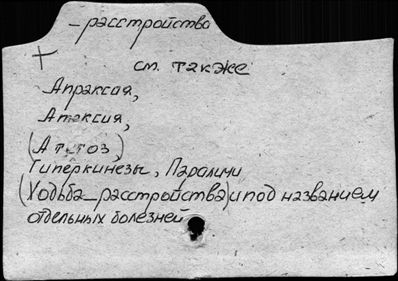 – расстройства
+
см. также
Апраксия,
Атаксия,
(Атетоз,)
Гиперкинезы, Параличи
(Ходьба – расстройства) и под названием
отдельных болезней